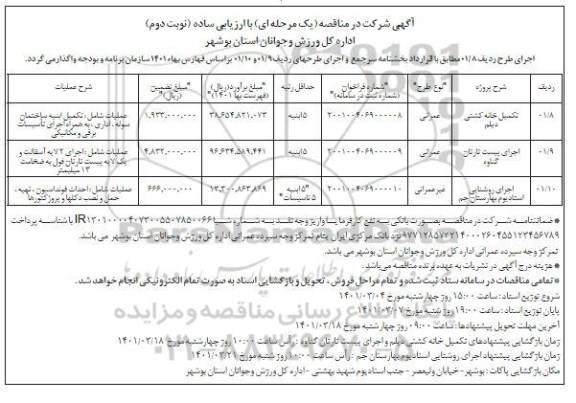 آگهی شرکت در مناقصه (یک مرحله ای) با ارزیابی ساده (نوبت دوم)
اداره کل ورزش و جوانان استان بوشهر
اجرای طرح ردیف ۰۱/۸ مطابق با قرارداد بخشنامه سرجمع و اجرای طرحهای ردیف ۰۱/۹ و ۰۱/۱۰ بر اساس فهارس بهاء ۱۴۰۱ سازمان برنامه و بودجه واگذار می گردد.
ردیف شرح پروژه "نوع طرح" "شماره فراخوان (شماره ثبت در سامانه)" حداقل رتبه "مبلغ برآورد (ریال) (فهرست بها ۱۴۰۱)" "مبلغ تضمین (ریال)" شرح عملیات
۰۱/۸ تکمیل خانه کشتی دیلم عمرانی ۲۰۰۱۰۰۴۰۶۹۰۰۰۰۰۸ ۵ ابنیه ۳۸,۶۵۴,۸۲۱,۰۷۳ ۱,۹۳۳,۰۰۰,۰۰۰ عملیات شامل : تکمیل ابنیه ساختمان سوله ، اداری ، به همراه اجرای تاسیسات برقی و مکانیکی
۰۱/۹ اجرای پیست تارتان گناوه عمرانی ۲۰۰۱۰۰۴۰۶۹۰۰۰۰۰۹ ۵ ابنیه ۹۶,۶۳۴,۵۸۹,۴۴۱ ۴,۸۳۲,۰۰۰,۰۰۰ عملیات شامل : اجرای ۲ لایه آسفالت و یک لایه پیست تارتان فول به ضخامت ۱۳ میلیمتر
۰۱/۱۰ اجرای روشنایی استادیوم بهارستان جم غیرعمرانی ۲۰۰۱۰۰۴۰۶۹۰۰۰۰۱۰ "۵ ابنیه ۵ تاسیسات" ۱۳,۳۰۰,۸۶۳,۸۶۹ ۶۶۶,۰۰۰,۰۰۰ عملیات شامل : احداث فونداسیون ، تهیه ، حمل و نصب دکلها و پروژکتورها
* ضمانتنامه شرکت در مناقصه بصورت بانکی به نفع کارفرما یا واریز وجه نقد به شماره شبا IR۱۳۰۱۰۰۰۰۴۰۷۳۰۰۵۵۰۷۸۵۰۰۶۶ با شناسه پرداخت
نزد بانک مرکزی ایران بنام تمرکز وجوه سپرده عمرانی اداره کل ورزش و جوانان استان بوشهر می باشد.
تمرکز وجه سپرده عمرانی اداره کل ورزش و جوانان استان بوشهر می باشد.
* هزینه درج آگهی در نشریات به عهده برنده مناقصه می باشد.
* تمامی مناقصات در سامانه ستاد ثبت شده و تمام مراحل فروش ، تحویل و بازگشایی اسناد به صورت تمام الکترونیکی انجام خواهد شد.
شروع توزیع اسناد : ساعت ۱۵:۰۰ روز چهارشنبه مورخ ۱۴۰۱/۰۳/۰۴
پایان توزیع اسناد : ساعت ۱۹:۰۰ روز شنبه مورخ ۱۴۰۱/۰۳/۰۷
آخرین مهلت تحویل پیشنهادها : ساعت ۰۹:۰۰ روز چهارشنبه مورخ ۱۴۰۱/۰۳/۱۸
زمان بازگشایی پیشنهادهای تکمیل خانه کشتی دیلم و اجرای پیست تارتان گناوه : رأس ساعت ۱۰:۰۰ روز چهارشنبه مورخ ۱۴۰۱/۰۳/۱۸
زمان بازگشایی پیشنهاد اجرای روشنایی استادیوم بهارستان جم : رأس ساعت ۱۰:۰۰ روز شنبه مورخ ۱۴۰۱/۰۳/۲۱
مکان بازگشایی پاکات : بوشهر- خیابان ولیعصر - جنب استادیوم شهید بهشتی - اداره کل ورزش و جوانان استان بوشهر